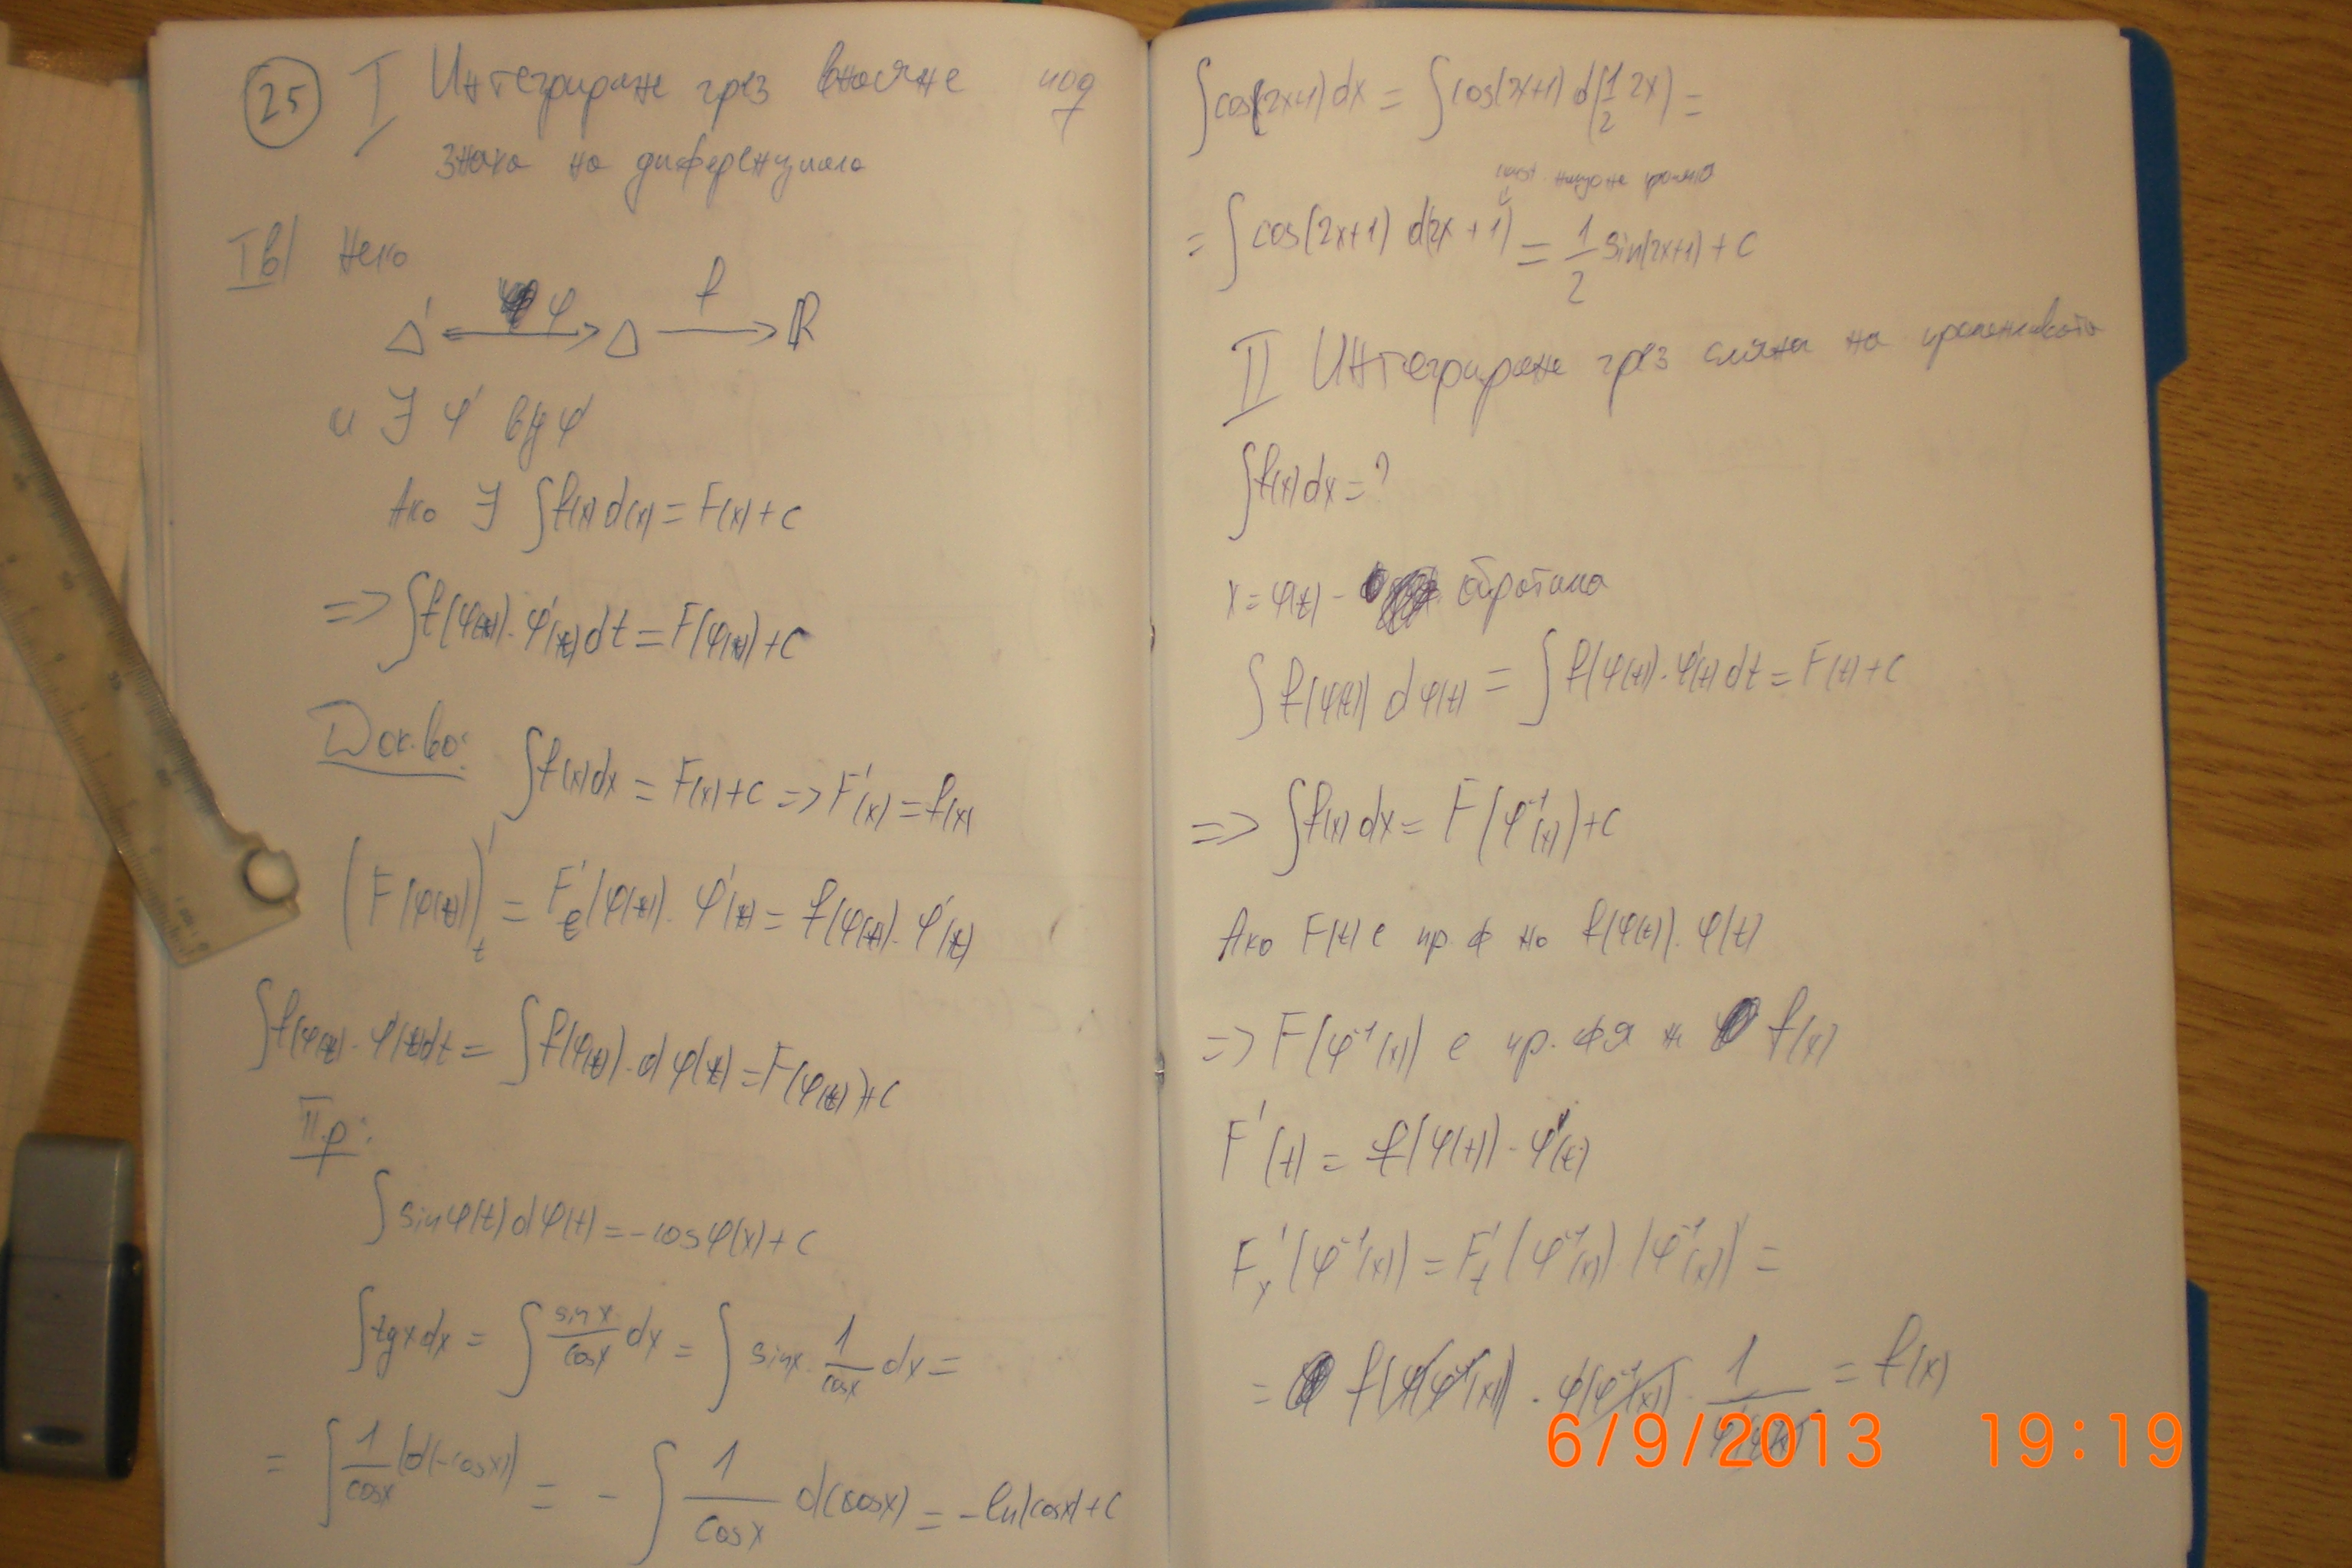 25 I Интегриране чрез внасяне под
знака на диференциала
Тв/ Нека
Δ' ⟷ φ Δ ⟶ f ℝ
и ∃ φ' в/у
Ако ∃ ∫f(x) d(x) = F(x) + c
=> ∫f(φ(t)).φ'(t) dt = F(φ(t)) + c
Док-во: ∫f(x)dx = F(x) + c => F'(x) = f(x)
(F(φ(t)))'t = F'(φ(t)). φ'(t) = f(φ(t)). φ'(t)
∫f(φ(t)). φ'(t)dt = ∫f(φ(t)). d φ(t) = F(φ(t)) + c
Пр:
∫sin φ(t) d φ(t) = -cos φ(x) + c
∫tg x dx = ∫ sin x / cos x dx = ∫ sin x . 1/cos x dx =
= ∫ 1/cos x (d(-cos x)) = - ∫ 1/cos x d(cos x) = -ln|cos x| + c
∫cos(2x+1) dx = ∫cos(2x+1) d(1/2 2x) =
const
= ∫cos(2x+1) d(2x+1) = 1/2 sin(2x+1) + c
II Интегриране чрез смяна на променливата
∫f(x) dx = ?
x = φ(t) - обратима
∫f(φ(t)) d φ(t) = ∫f(φ(t)). φ'(t) dt = F(t) + c
=> ∫f(x) dx = F(φ⁻¹(x)) + c
Ако F(t) е пр. ф на f(φ(t)). φ(t)
=> F(φ⁻¹(x)) е пр. ф-я н f(x)
F'(t) = f(φ(t)). φ'(t)
F'x(φ⁻¹(x)) = F't(φ⁻¹(x)) (φ⁻¹(x))' =
= f(φ(φ⁻¹(x))) . φ'(φ⁻¹(x)) . 1/ = f(x)
6/9/2013 19:19